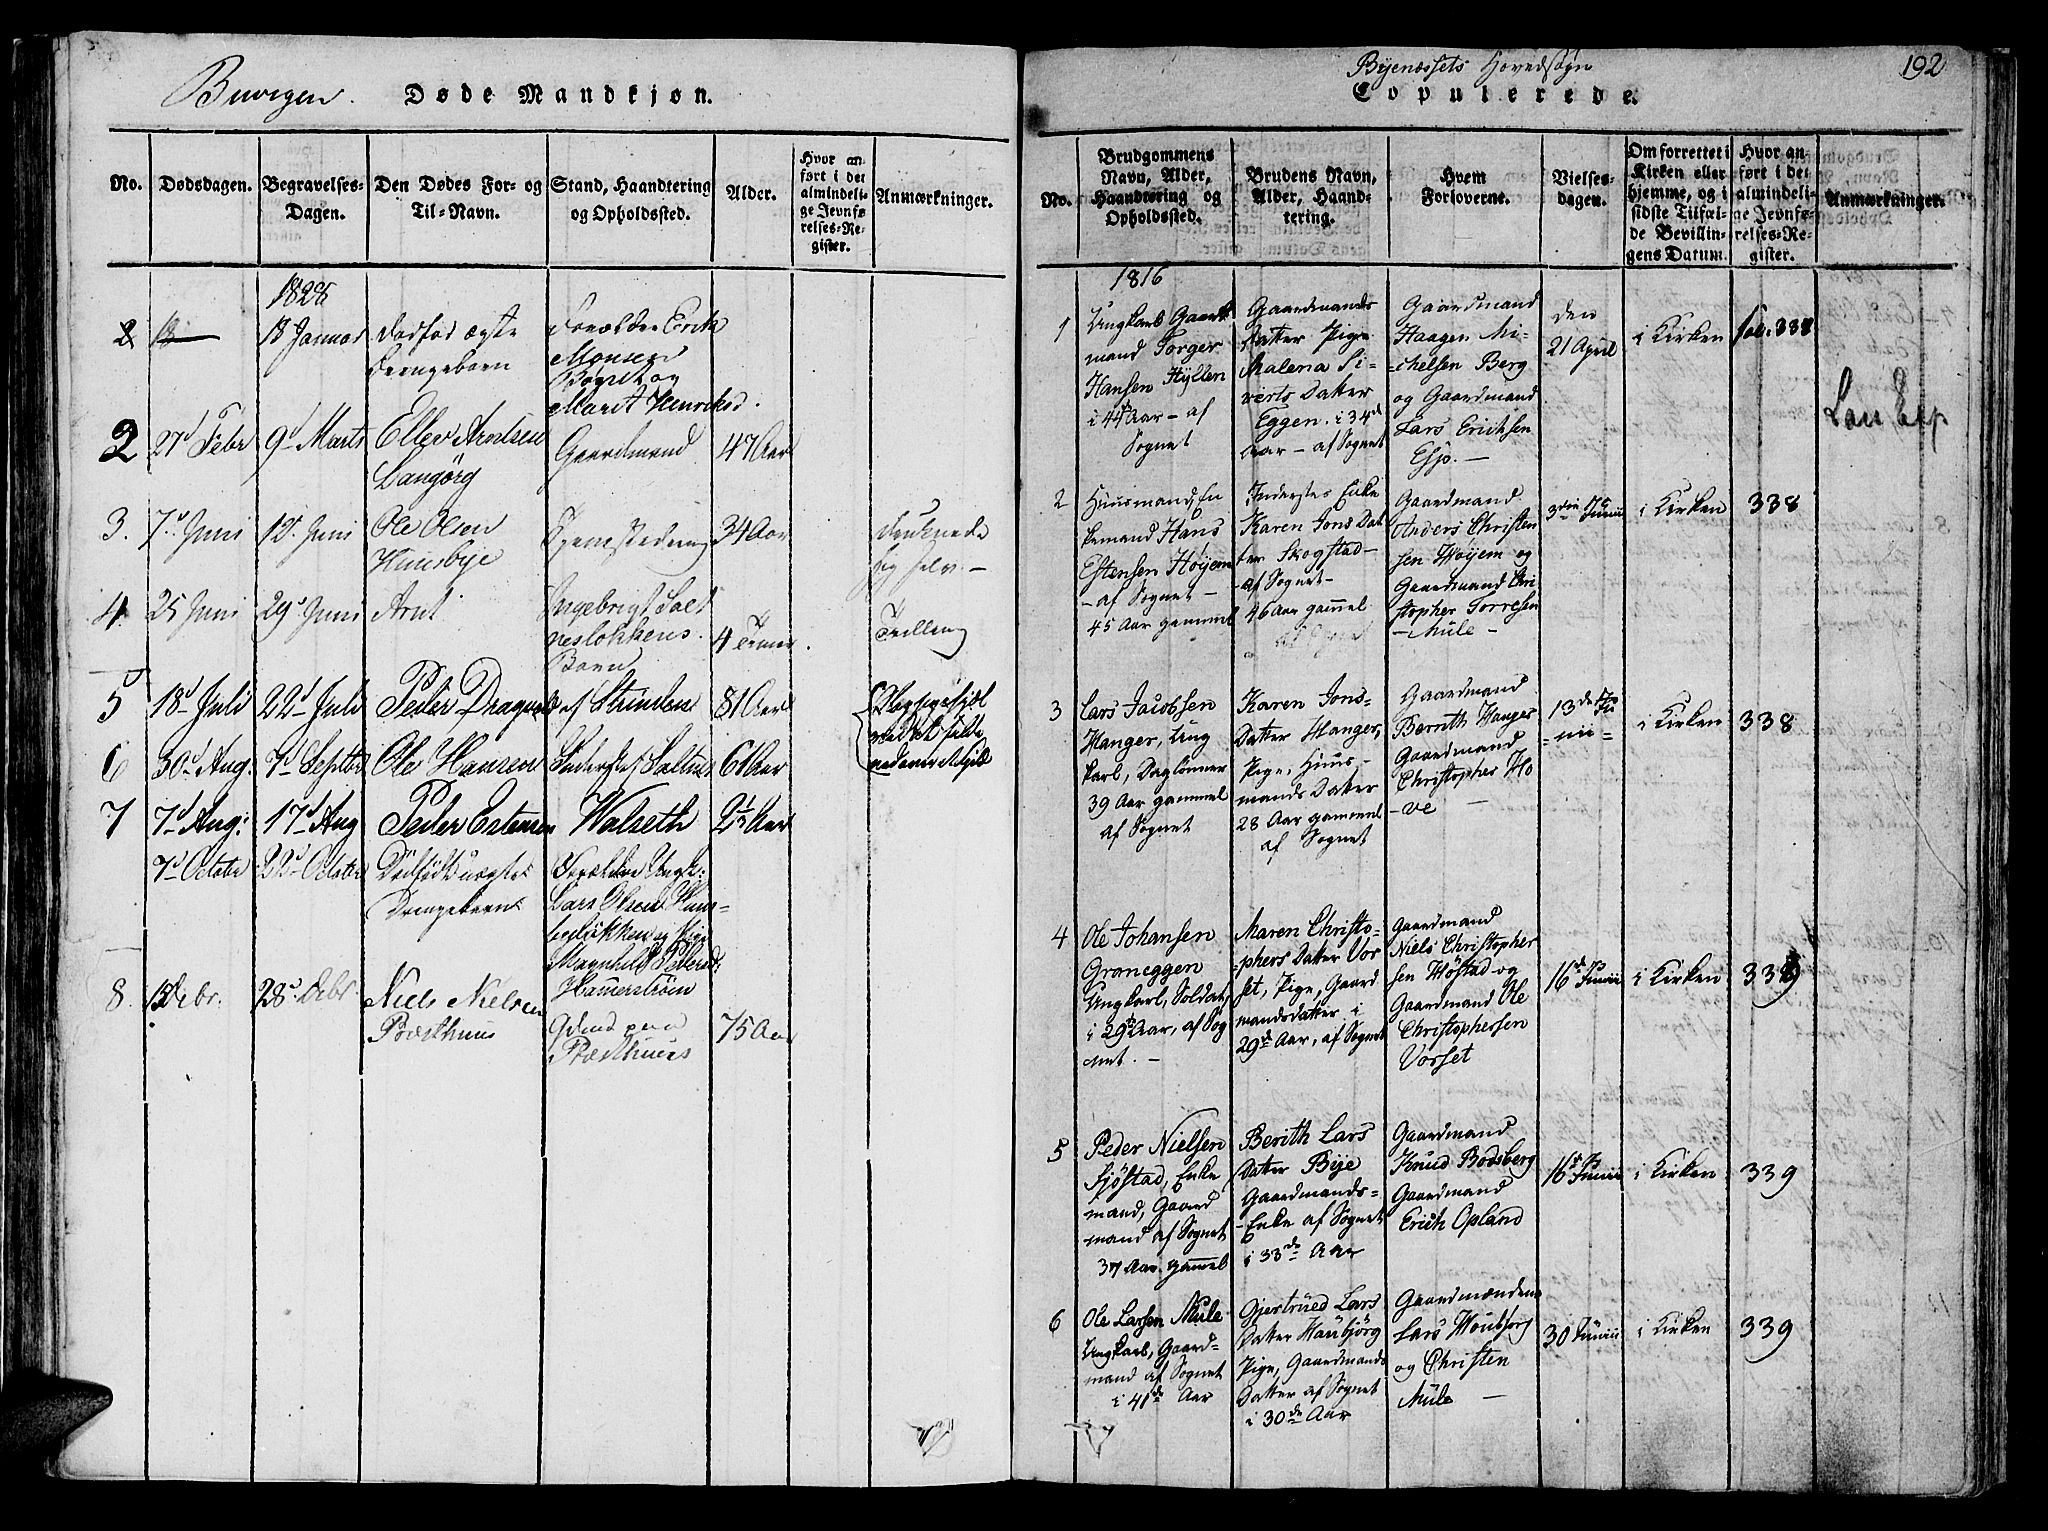 Buvigen. Døde Mandkjøn.
No. Dødsdagen. Begravelses-Dagen. Den Dødes For- og Til-Navn. Stand, Haandtering og Opholdssted. Alder. Hvor anført i det almindelige Jevnførelses-Register. Anmærkninger.
1825
18 Januar Dødfød ægte Drengebarn Forældre Erik Monsen Bøgset og Marit Henriksd.
2 27d Febr 9d Marts Ellev Arntsen Langørg Gaardmand 47 Aar
3. 7d Juni 12d Juni Ole Olsen Huusbye 34 Aar Druknede sig selv. -
4. 25 Juni 29d Juni Arnt Ingebrigt Saltneslökkens Barn 4 Timer Trilling
5 18d Juli 22d Juli Peder Dragsed af Strinden 81 Aar
6 30d Aug: 7d Septbr Ole Hansen 61 Aar
7 7d Aug: 17d Aug Peder Estensen Walseth 2½ Aar
7d Octobr 22d Octobr Dødfødt uægte Drengebarn Forældre Ungk: Lars Olsen Huusbyløkken og Pige Magnhild Pedersd: Hammerstrøm
8. Debr. 28d Debr Niels Nielsen Præsthuus Præsthuus 75 Aar
Byenæssets Hovedsogn 192
Copulerede.
No. Brudgommens Navn, Alder, Haandtering og Opholdssted. Brudens Navn, Alder, Haandtering. Hvem Forloverne. Vielsesdagen. Om forrettet i Kirken eller hjemme, og i sidste Tilfælde Bevillingens Datum. Hvor anført i det almindelige Jevnførelses-Register. Anmærkninger.
1816
1 Ungkarl Gaardmand Torger Hansen Hyllen i 44de Aar - af Sognet
Gaardmands Datter Pige Malena Siverts Datter Eggen. i 34d Aar - af Sognet
Gaardmand Haagen Michelsen Berg og Gaardmand Lars Ericksen Esp. -
den 21 April i Kirken fol. 338 Lars Esp
2 Huusmand, Enkemand Hans Estensen Höyem - af Sognet - 45 Aar gammel
Inderstes Enke Karen Jons Datter Skogstad - af Sognet - 46 Aar gammel
Gaardmand Anders Christensen Höyem og Gaardmand Christopher Torresen - Mule -
3die Junii i Kirken 338
3 Lars Jacobsen Hanger, Ungkarl, Daglønner 39 Aar gammel af Sognet
Karen Jons-Datter Hanger, Pige, Huusmands Datter 28 Aar gammel af Sognet
Gaardmand Bernth Hanger Gaardmand Christopher Hove -
13de Junii - i Kirken 338
4 Ole Johansen Graneggen Ungkarl, Soldat, i 29de Aar, af Sognet. -
Maren Christophers Datter Vorset, Pige, Gaardmandsdatter i 29de Aar, af Sognet
Gaardmand Niels Christophersen Höstad og Gaardmand Ole Christophersen Vorset
16d Junii i Kirken 339
5 Peder Nielsen Sjöstad, Enkemand, Gaardmand af Sognet 37 Aar gammel
Berith Lars Datter Bye Gaardmands-Enke af Sognet i 33de Aar
Gaardmand Knud Bodsberg Gaardmand Erich Opland
16d Junii i Kirken 339
6 Ole Larsen Mule Ungkarl, Gaardmand af Sognet i 41de Aar
Gjertrued Lars Datter Haubjörg Pige, Gaardmands Datter af Sognet i 30de Aar
Gaardmændene Lars Houbjorg og Christen Mule -
30 Junii i Kirken 339